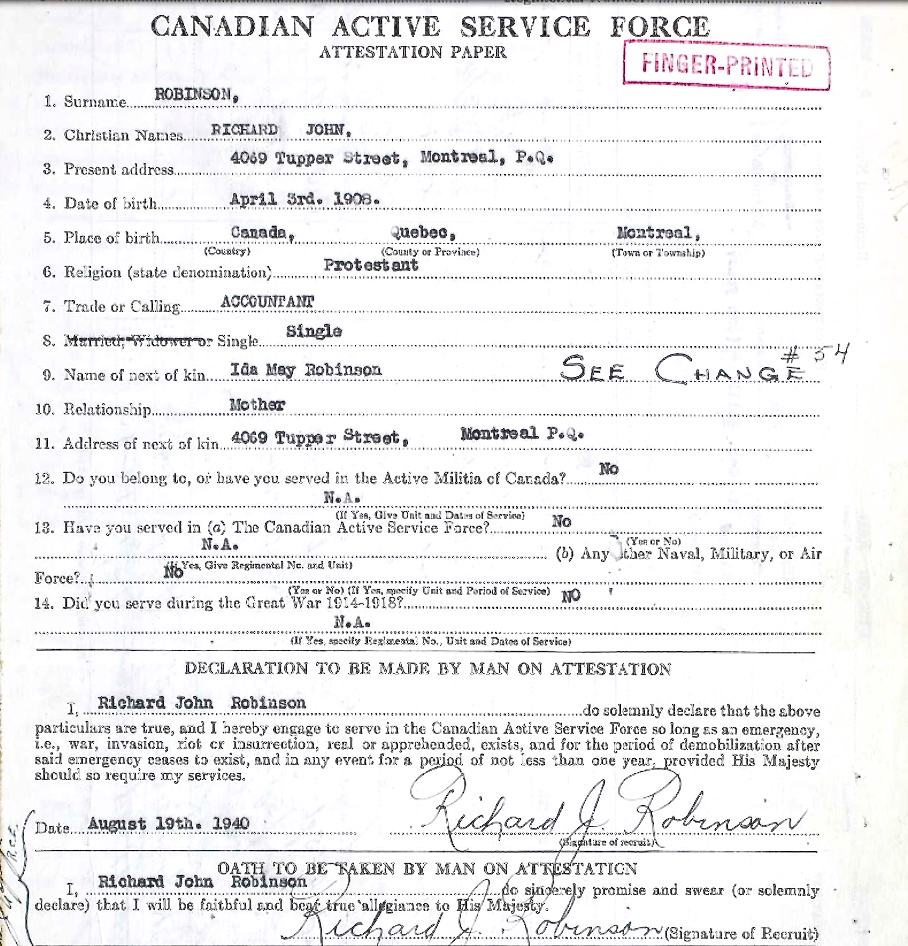 CANADIAN ACTIVE SERVICE FORCE
ATTESTATION PAPER
FINGER-PRINTED
1. Surname ROBINSON,
2. Christian Names RICHARD JOHN.
3. Present address 4069 Tupper Street, Montreal, P.Q.
4. Date of birth April 3rd. 1908.
5. Place of birth Canada, Quebec, Montreal,
(Country) (County or Province) (Town or Township)
6. Religion (state denomination) Protestant
7. Trade or Calling ACCOUNTANT
8. Married, Widower or Single Single
9. Name of next of kin Ida May Robinson SEE CHANGE # 54
10. Relationship Mother
11. Address of next of kin 4069 Tupper Street, Montreal P.Q.
12. Do you belong to, or have you served in the Active Militia of Canada? No
N.A.
(If Yes, Give Unit and Dates of Service)
13. Have you served in (a) The Canadian Active Service Force? No
(Yes or No)
N.A. (b) Any other Naval, Military, or Air
(If Yes, Give Regimental No. and Unit)
Force? No
(Yes or No) (If Yes, specify Unit and Period of Service)
14. Did you serve during the Great War 1914-1918? NO
N.A.
(If Yes, specify Regimental No., Unit and Dates of Service)
DECLARATION TO BE MADE BY MAN ON ATTESTATION
I, Richard John Robinson do solemnly declare that the above
particulars are true, and I hereby engage to serve in the Canadian Active Service Force so long as an emergency,
i.e., war, invasion, riot or insurrection, real or apprehended, exists, and for the period of demobilization after
said emergency ceases to exist, and in any event for a period of not less than one year, provided His Majesty
should so require my services.
Richard J. Robinson
Date August 19th. 1940
(Signature of recruit)
OATH TO BE TAKEN BY MAN ON ATTESTATION
I, Richard John Robinson do sincerely promise and swear (or solemnly
declare) that I will be faithful and bear true allegiance to His Majesty.
Richard J. Robinson (Signature of Recruit)